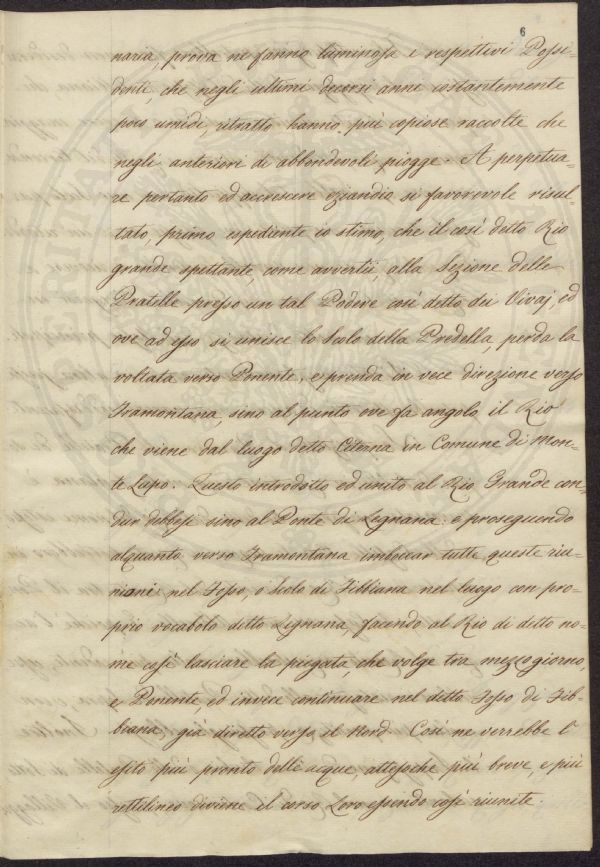 6
naria, prova ne fanno luminosa i respettivi Possi-
denti, che negli ultimi decorsi anni costantemente
poco umidi, ritratto hanno più copiose raccolte che
negli anteriori di abbondevoli piogge. A perpetua-
re pertanto ed accrescere eziandio si favorevole risul-
tato, primo espediente io stimo, che il così detto Rio
grande spettante, come avvertii, alla Sezione delle
Pratelle presso un tal Podere così detto dei Vivaj, ed
ove ad esso si unisce lo Scolo della Predella, perda la
voltata verso Ponente, e prenda in vece direzione verso
Tramontana, sino al punto ove fa angolo il Rio
che viene dal luogo detto Citerna in Comune di Mon-
te Lupo. Questo introdotto ed unito al Rio Grande con-
dur debbesi sino al Ponte di Lignana: e proseguendo
alquanto verso Tramontana imboccar tutte queste riu-
nioni nel Fosso, o Scolo di Fibbiana nel luogo con pro-
prio vocabolo detto Lignana, facendo al Rio di detto no-
me così lasciare la piegata, che volge tra mezzogiorno,
e Ponente, ed invece continuare nel detto Fosso di Fib-
biana, già diretto verso il Nord. Così ne verrebbe l'
esito più pronto delle acque, attesoche più breve, e più
rettilineo diviene il corso Loro essendo così riunite.